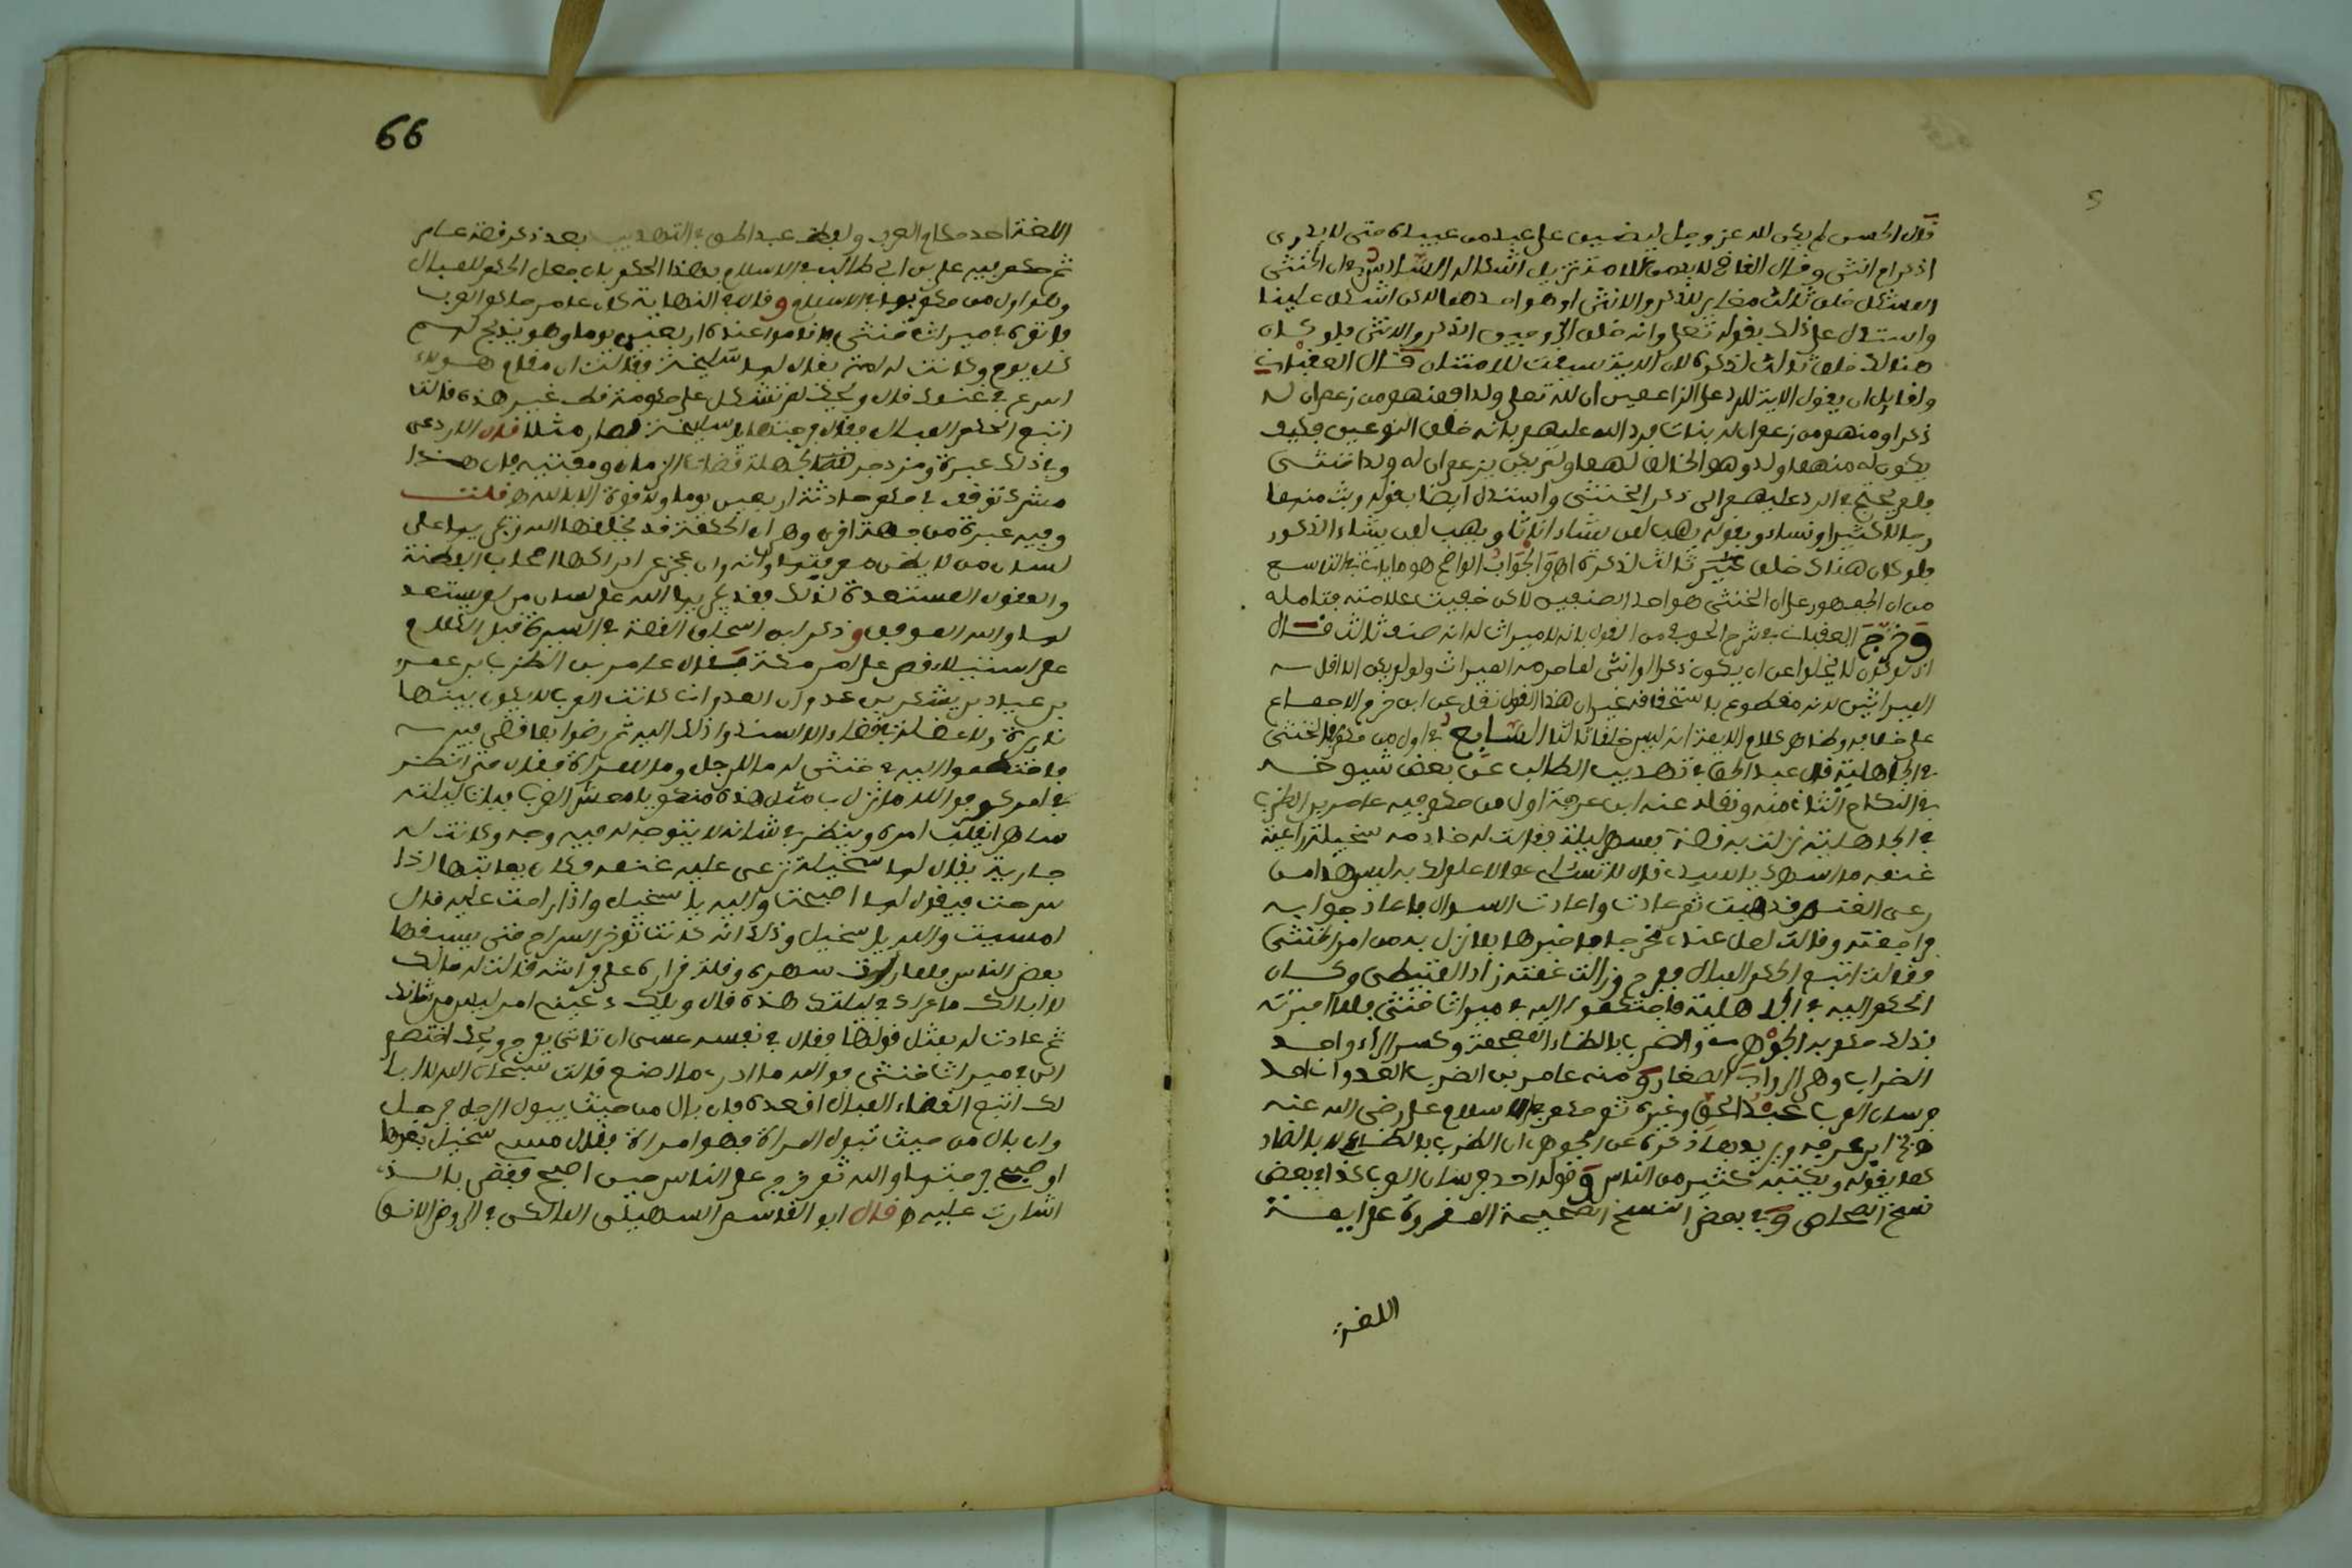 قال الحسن لم يكن الله عز وجل ليضيق على عبد من عبيده حتى لا يدرى
اذكر ام انثى وقال القاضي لا بد من علامة تزيل اشكاله السادس في ان الخنثى
المشكل خلق ثالث مغاير للذكر والانثى او هو احدهما لاكن اشكل علينا
واستدل على ذلك بقوله تعلى وانه خلق الزوجين الذكر والانثى فلو كان
هنالك خلق ثالث لذكره لان الاية سيقت للامتنان قال العقباني
ولقايل ان يقول الاية للرد على الزاعمين ان لله تعلى ولدا فمنهم من زعم ان له
ذكرا ومنهم من زعم ان له بنات فرد الله عليهم بانه خلق النوعين فكيف
يكون له منهما ولد وهو الخالق لهما ولم يكن يزعم ان له ولدا خنثى
فلم يحتج في الرد عليهم الى ذكر الخنثى واستدل ايضا بقوله وبث منهما
رجالا كثيرا ونساء وبقوله يهب لمن يشاء اناثا ويهب لمن يشاء الذكور
فلو كان هناك خلق ثالث لذكره والجواب الواضح هو ما يات في التاسع
من ان الجمهور على ان الخنثى هو احد الصنفين لاكن خفيت علامته فتامله
وخرج العقباني في شرح الحوفي من القول بانه لا ميراث له انه صنف ثالث قال
اذ لو كان لا يخلوا عن ان يكون ذكرا او انثى لما حرمه الميراث ولو لم يكن الا اقل
الميراثين لانه مقطوع باستحقاقه غير ان هذا القول نقل عن ابن حزم الاجماع
على خلافه وظاهر كلام الايمة انه ليس خلقا ثالثا السابع في اول من حكم في الخنثى
في الجاهلية قال عبد الحق في تهذيب الطالب عن بعض شيوخه
في النكاح الثاني منه ونقله عنه ابن عرفة اول من حكم فيه عامر بن الظرب
في الجاهلية نزلت به قضية فسهر ليلة فقالت له خادمه سخيلة راعية
غنمه ما اسهرك يا سيدي قال لا تسئلي عما لا علم لك به ليس هذا من
رعي الغنم فذهبت ثم عادت واعادت السوال فاعاد جوابه
فراجعته وقالت لعل عندي مخرجا فاخبرها بما نزل به من امر الخنثى
فقالت اتبع الحكم المبال ففرح وزالت غمته زاد المتيطي وكان
الحكم اليه في الجاهلية فاحتكموا اليه في ميراث خنثى فلما اخبرته
بذلك حكم به الجوهري والضرب بالظاء المعجمة وكسر الراء واحد
الضراب وهي الرواب الصغار ومنه عامر بن الضرب العدواني احد
فرسان العرب عبد الحق وغيره ثم حكم به في الاسلام علي رضي الله عنه
ابن عرفة ذكره عن الجوهري ان الظرب بالظاء لا بالضاد
كما يقوله ويكتبه كثير من الناس وقوله احد فرسان العرب كذا في بعض
نسخ الصحاح وفي بعض النسخ الصحيحة المقروة على ايمة
اللغة
66
اللغة احد حكام العرب ولفظ عبد الحق في التهذيب بعد ذكر قصة عامر
ثم حكم فيه علي بن ابي طالب في الاسلام بهذا الحكم بان جعل الحكم للمبال
وهو اول من حكم بها في الاسلام وقال في النهاية كان عامر حاكم العرب
فاتوه في ميراث خنثى فاقاموا عنده اربعين يوما وهو يذبح لهم
كل يوم وكانت له امة يقال لها سخيلة فقالت ان مقام هولاء
اسرع في غنمك فقال ويحك لم تشكل علي حكومة قط غير هذه قالت
اتبع الحكم المبال فقال فرجتها يا سخيلة فصار مثلا قال الاذرعي
وفي ذلك عبرة ومزدجر لجهلة قضاة الزمان ومفتييه فان هذا
مشرك توقف في حكم حادثة اربعين يوما ولا قوة الا بالله قلت
وفيه عبرة من جهة اخرى وهي ان الحكمة قد يخلقها الله ويجريها على
لسان من لا يظن معرفتها وانه وان عجز عن ادراكها اصحاب الفطنة
والعقول المستعدة لذلك فقد يجريها الله على لسان من لم يستعد
لها والله الموفق وذكر ابن اسحاق القصة في السيرة قبل الكلام
على استيلاء قصي على امر مكة فقال عامر بن الظرب بن عمرو
بن عياد بن يشكر بن عدوان العدواني كانت العرب لا يكون بينها
نايرة ولا عضلة في قضاء الا اسندوا ذلك اليه ثم رضوا بما قضى فيه
فاختصموا اليه في خنثى له ما للرجل وما للمراة فقال حتى انظر
في امركم فوالله ما نزل بي مثل هذه منكم يا معشر العرب فبات ليلته
ساهرا يقلب امره وينظر في شانه لا يتوجه له فيه وجه وكانت له
جارية يقال لها سخيلة ترعى عليه غنمه وكان يعاتبها اذا
سرحت فيقول لها اصبحت والله يا سخيل واذا راحت عليه قال
امسيت والله يا سخيل وذلك انها كانت توخر السراح حتى يسبقها
بعض الناس فلما رات سهره وقلة قراره على فراشه قالت له مالك
لا ابالك ما عراك في ليلتك هذه قال ويلك دعيني امر ليس من شانك
ثم عادت له بمثل قولها فقال في نفسه عسى ان تاتي بفرج ويحك اختصم
الي في ميراث خنثى فوالله ما ادري ما اصنع قالت سبحان الله لا ابا
لك اتبع القضاء المبال اقعده فان بال من حيث يبول الرجل فرجل
وان بال من حيث تبول المراة فهو امراة فقال مسي سخيل بعدها
او صبحي فرجتها والله ثم خرج على الناس حين اصبح فقضى بالذي
اشارت عليه قال ابو القاسم السهيلي المالكي في الروض الانف